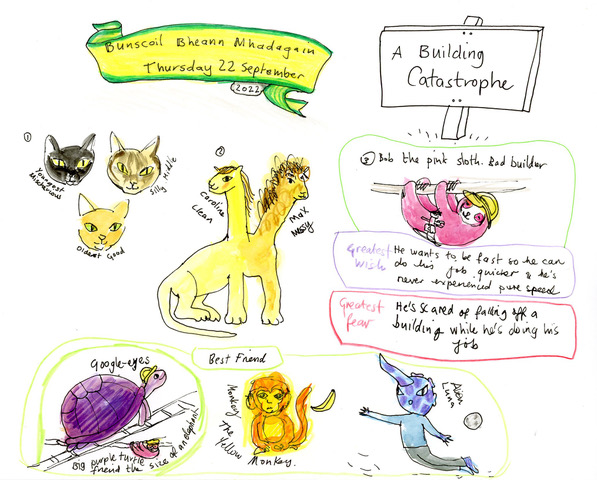 Bunscoil Bheann Mhadagáin
Thursday 22 September
(2022)
A Building
Catastrophe
①
Youngest
Mischevious
Silly Middle
Oldest Good
②
Caroline
Clean
Max
Messy
③ Bob the pink sloth. Bad builder
Greatest
wish
He wants to be fast so he can
do his job quicker & he's
never experienced pure speed
Greatest
fear
He's scared of falling off a
building while he's doing his
job
Best Friend
Google-eyes
Big purple turtle
friend the size of an elephant
Monkey The Yellow
Monkey.
Luna